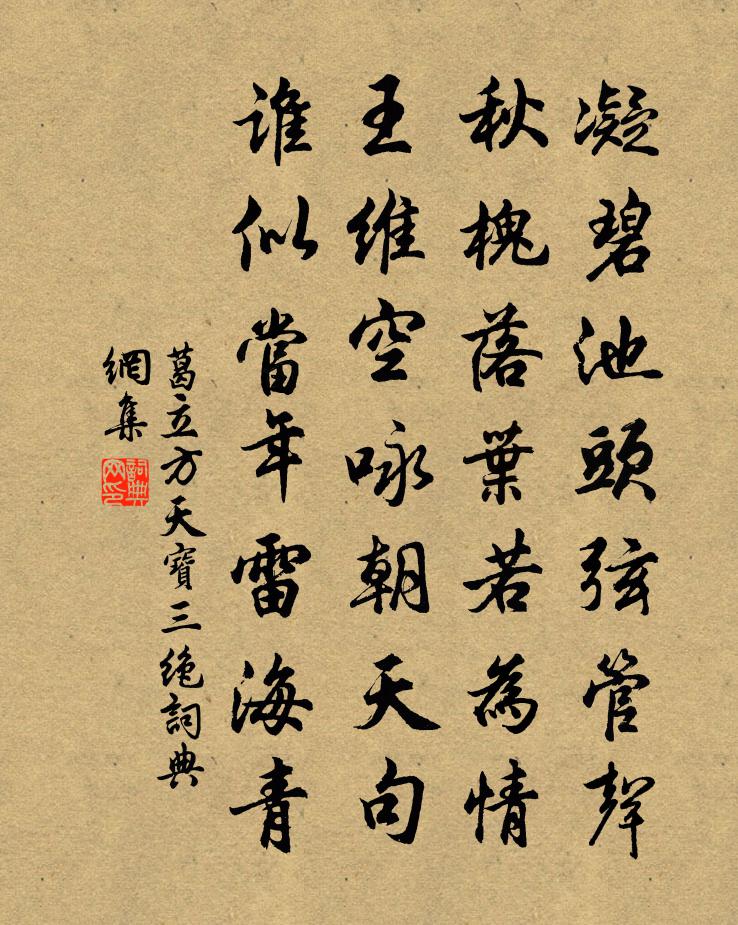 凝碧池頭弦管聲
秋槐落葉若為情
王維空咏朝天句
誰似當年雷海青
葛立方天寶三絶詞典
網集
詞典
網印